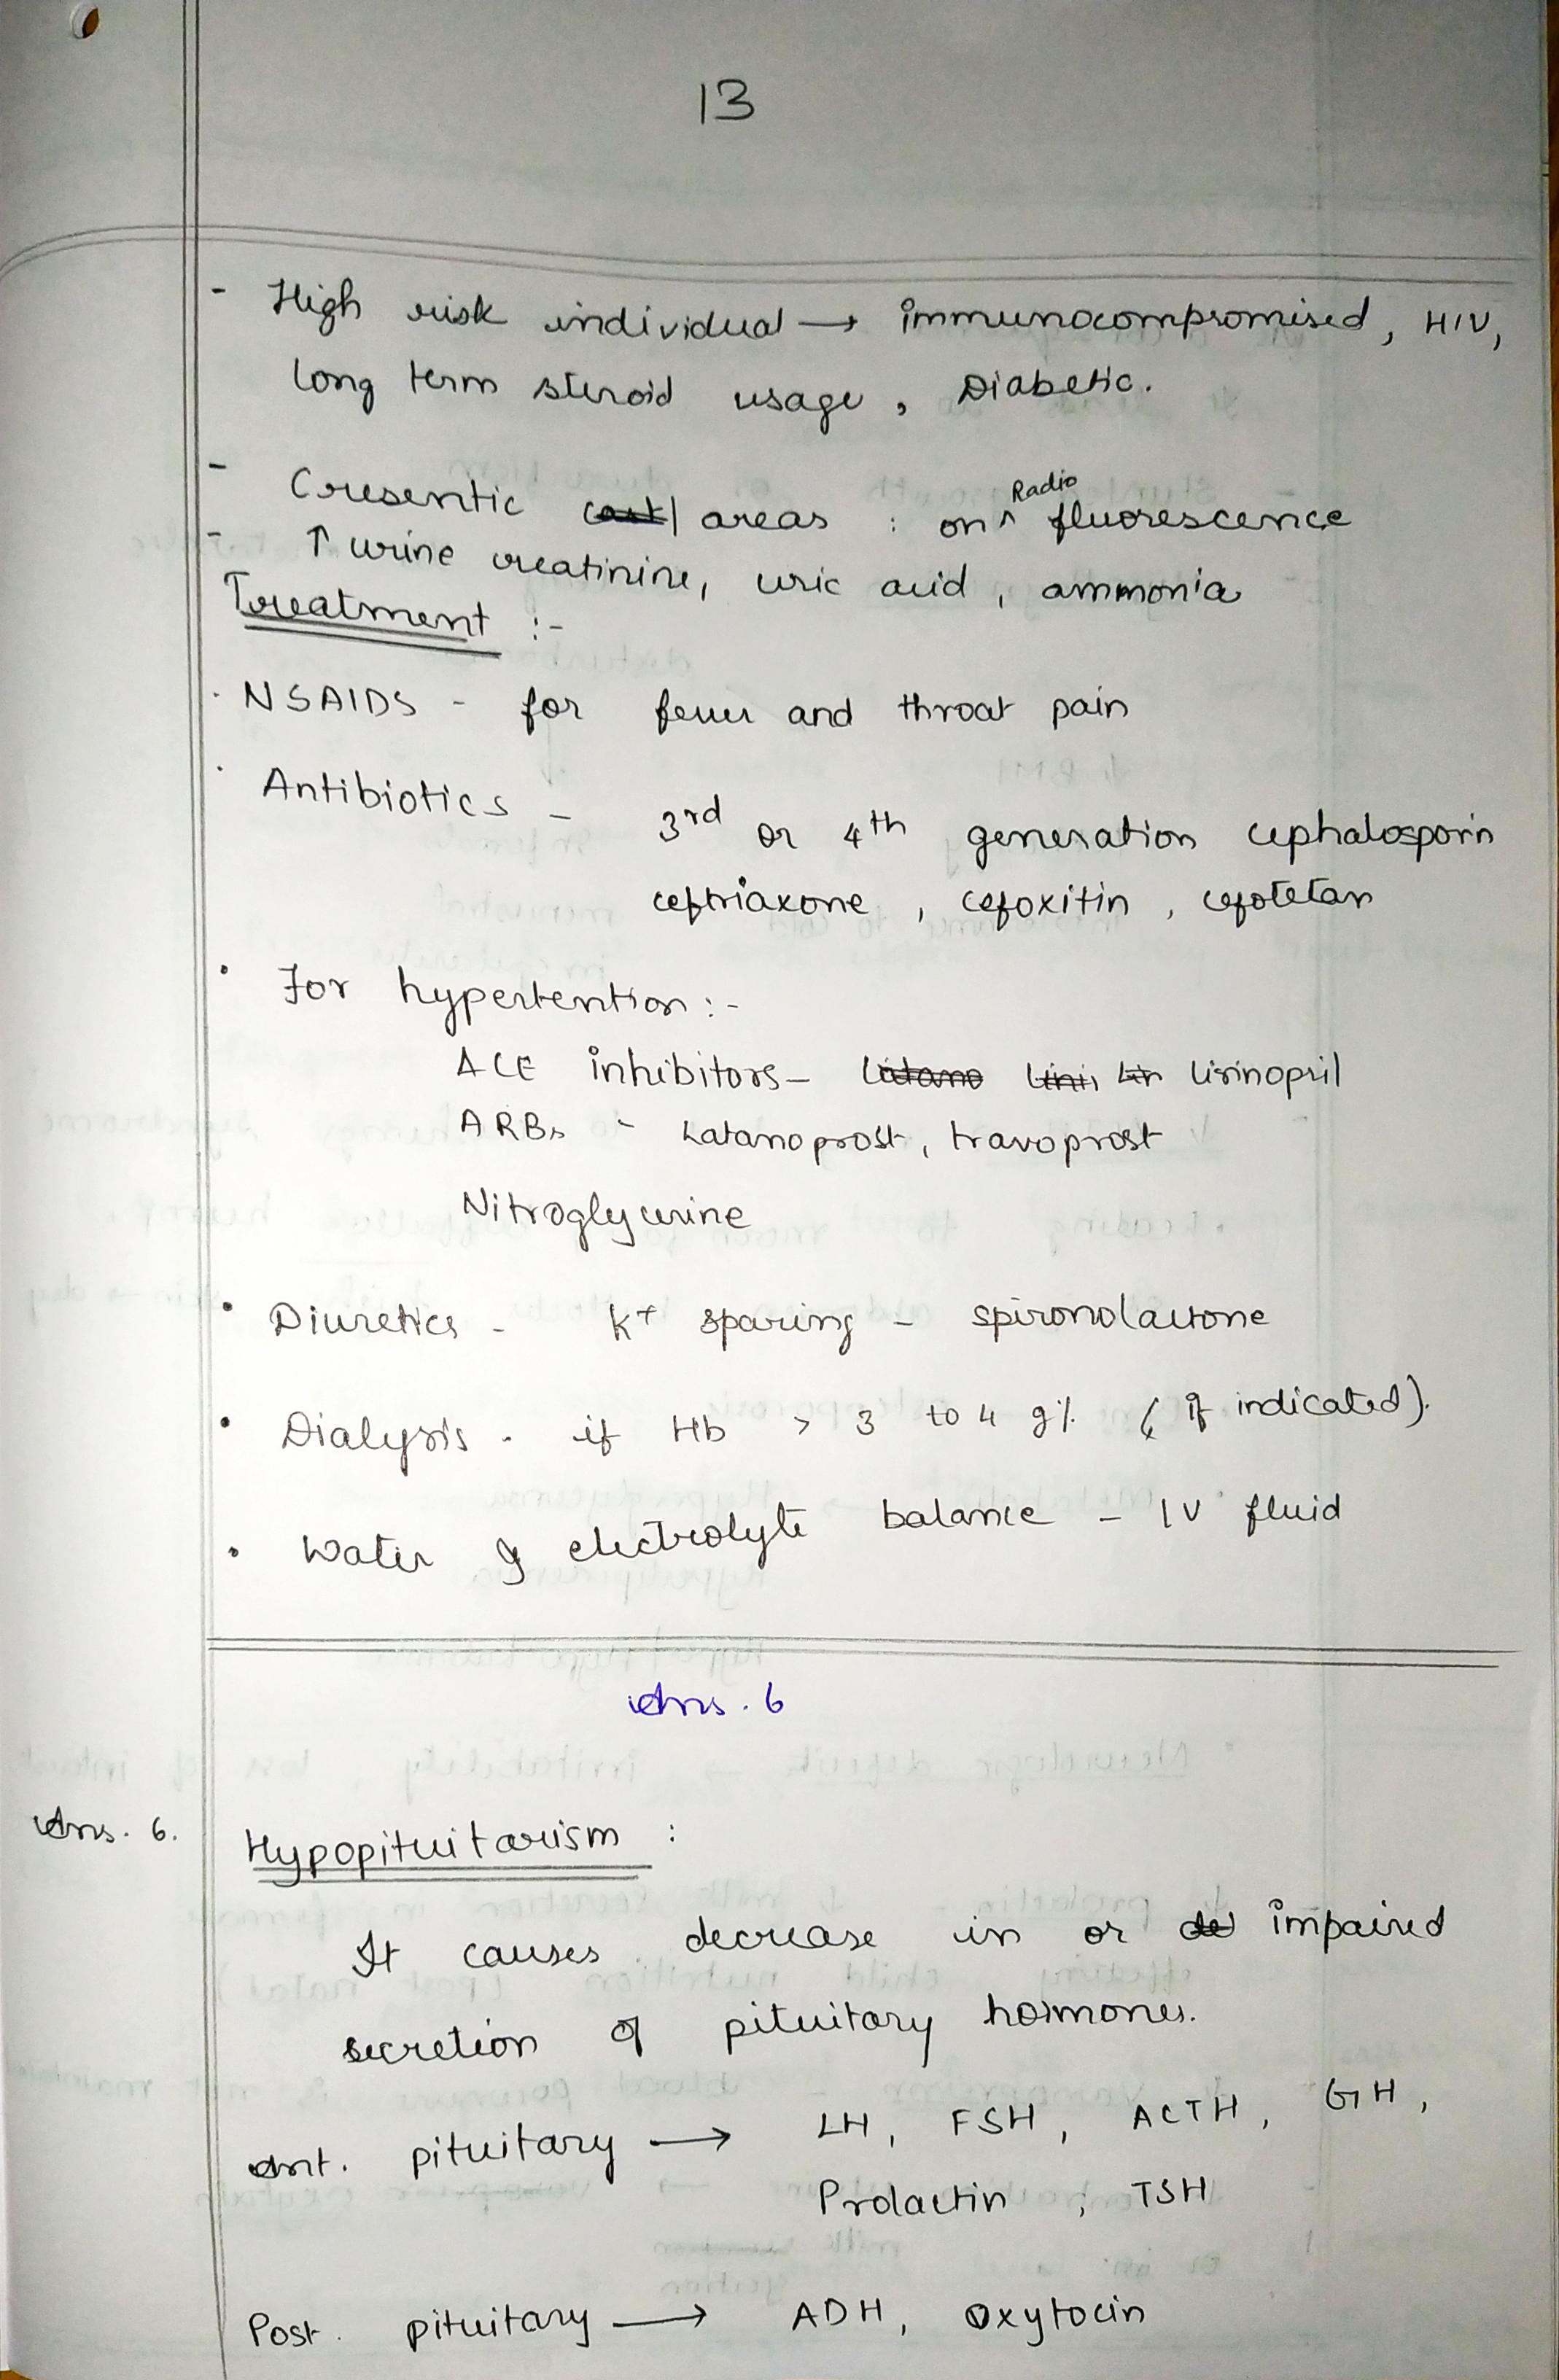 13
- High risk individual → immunocompromised, HIV,
long term steroid usage, Diabetic.
- Cresentic areas : on ^ Radio fluorescence
- ↑ urine creatinine, uric acid, ammonia
Treatment :-
· NSAIDS - for fever and throat pain
· Antibiotics - 3rd or 4th generation cephalosporin
ceftriaxone, cefoxitin, cefotetan
• For hypertention :-
ACE inhibitors - lisinopril
ARBs - Latanoprost, travoprost
Nitroglycerine
• Diuretics - K+ sparing - spironolactone
• Dialysis - if Hb > 3 to 4 g% (if indicated).
• Water & electrolyte balance - IV fluid
Ans. 6
Ans. 6. Hypopituitarism :
It causes decrease in or impaired
secretion of pituitary hormones.
Ant. pituitary → LH, FSH, ACTH, GH,
Prolactin, TSH
Post. pituitary → ADH, Oxytocin